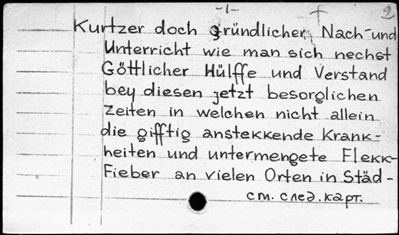 -1-
2
Kurtzer doch gründlicher, Nach-und
Unterricht wie man sich nechst
Göttlicher Hülffe und Verstand
bey diesen jetzt besorglichen
Zeiten in welchen nicht allein
die gifftig anstekkende Krank-
heiten und untermengete Flekk-
Fieber an vielen Orten in Städ-
см. след. карт.